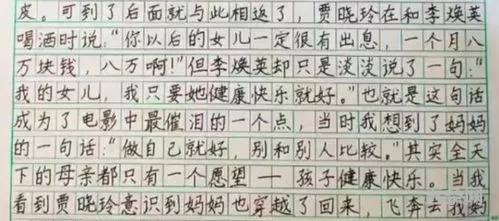 皮。可到了后面就与此相返了，贾晓玲在和李焕英
喝酒时说："你以后的女儿一定很有出息，一个月八
万块钱，八万啊！"但李焕英却只是淡淡说了一句："
我的女儿，我只要她健康快乐就好。"也就是这句话
成为了电影中最催泪的一个点，当时我想到了妈妈
的一句话："做自己就好，别和别人比较。"其实全天
下的母亲都只有一个愿望——孩子健康快乐。当我
看到贾晓玲意识到妈妈也穿越了回来，飞奔去找妈